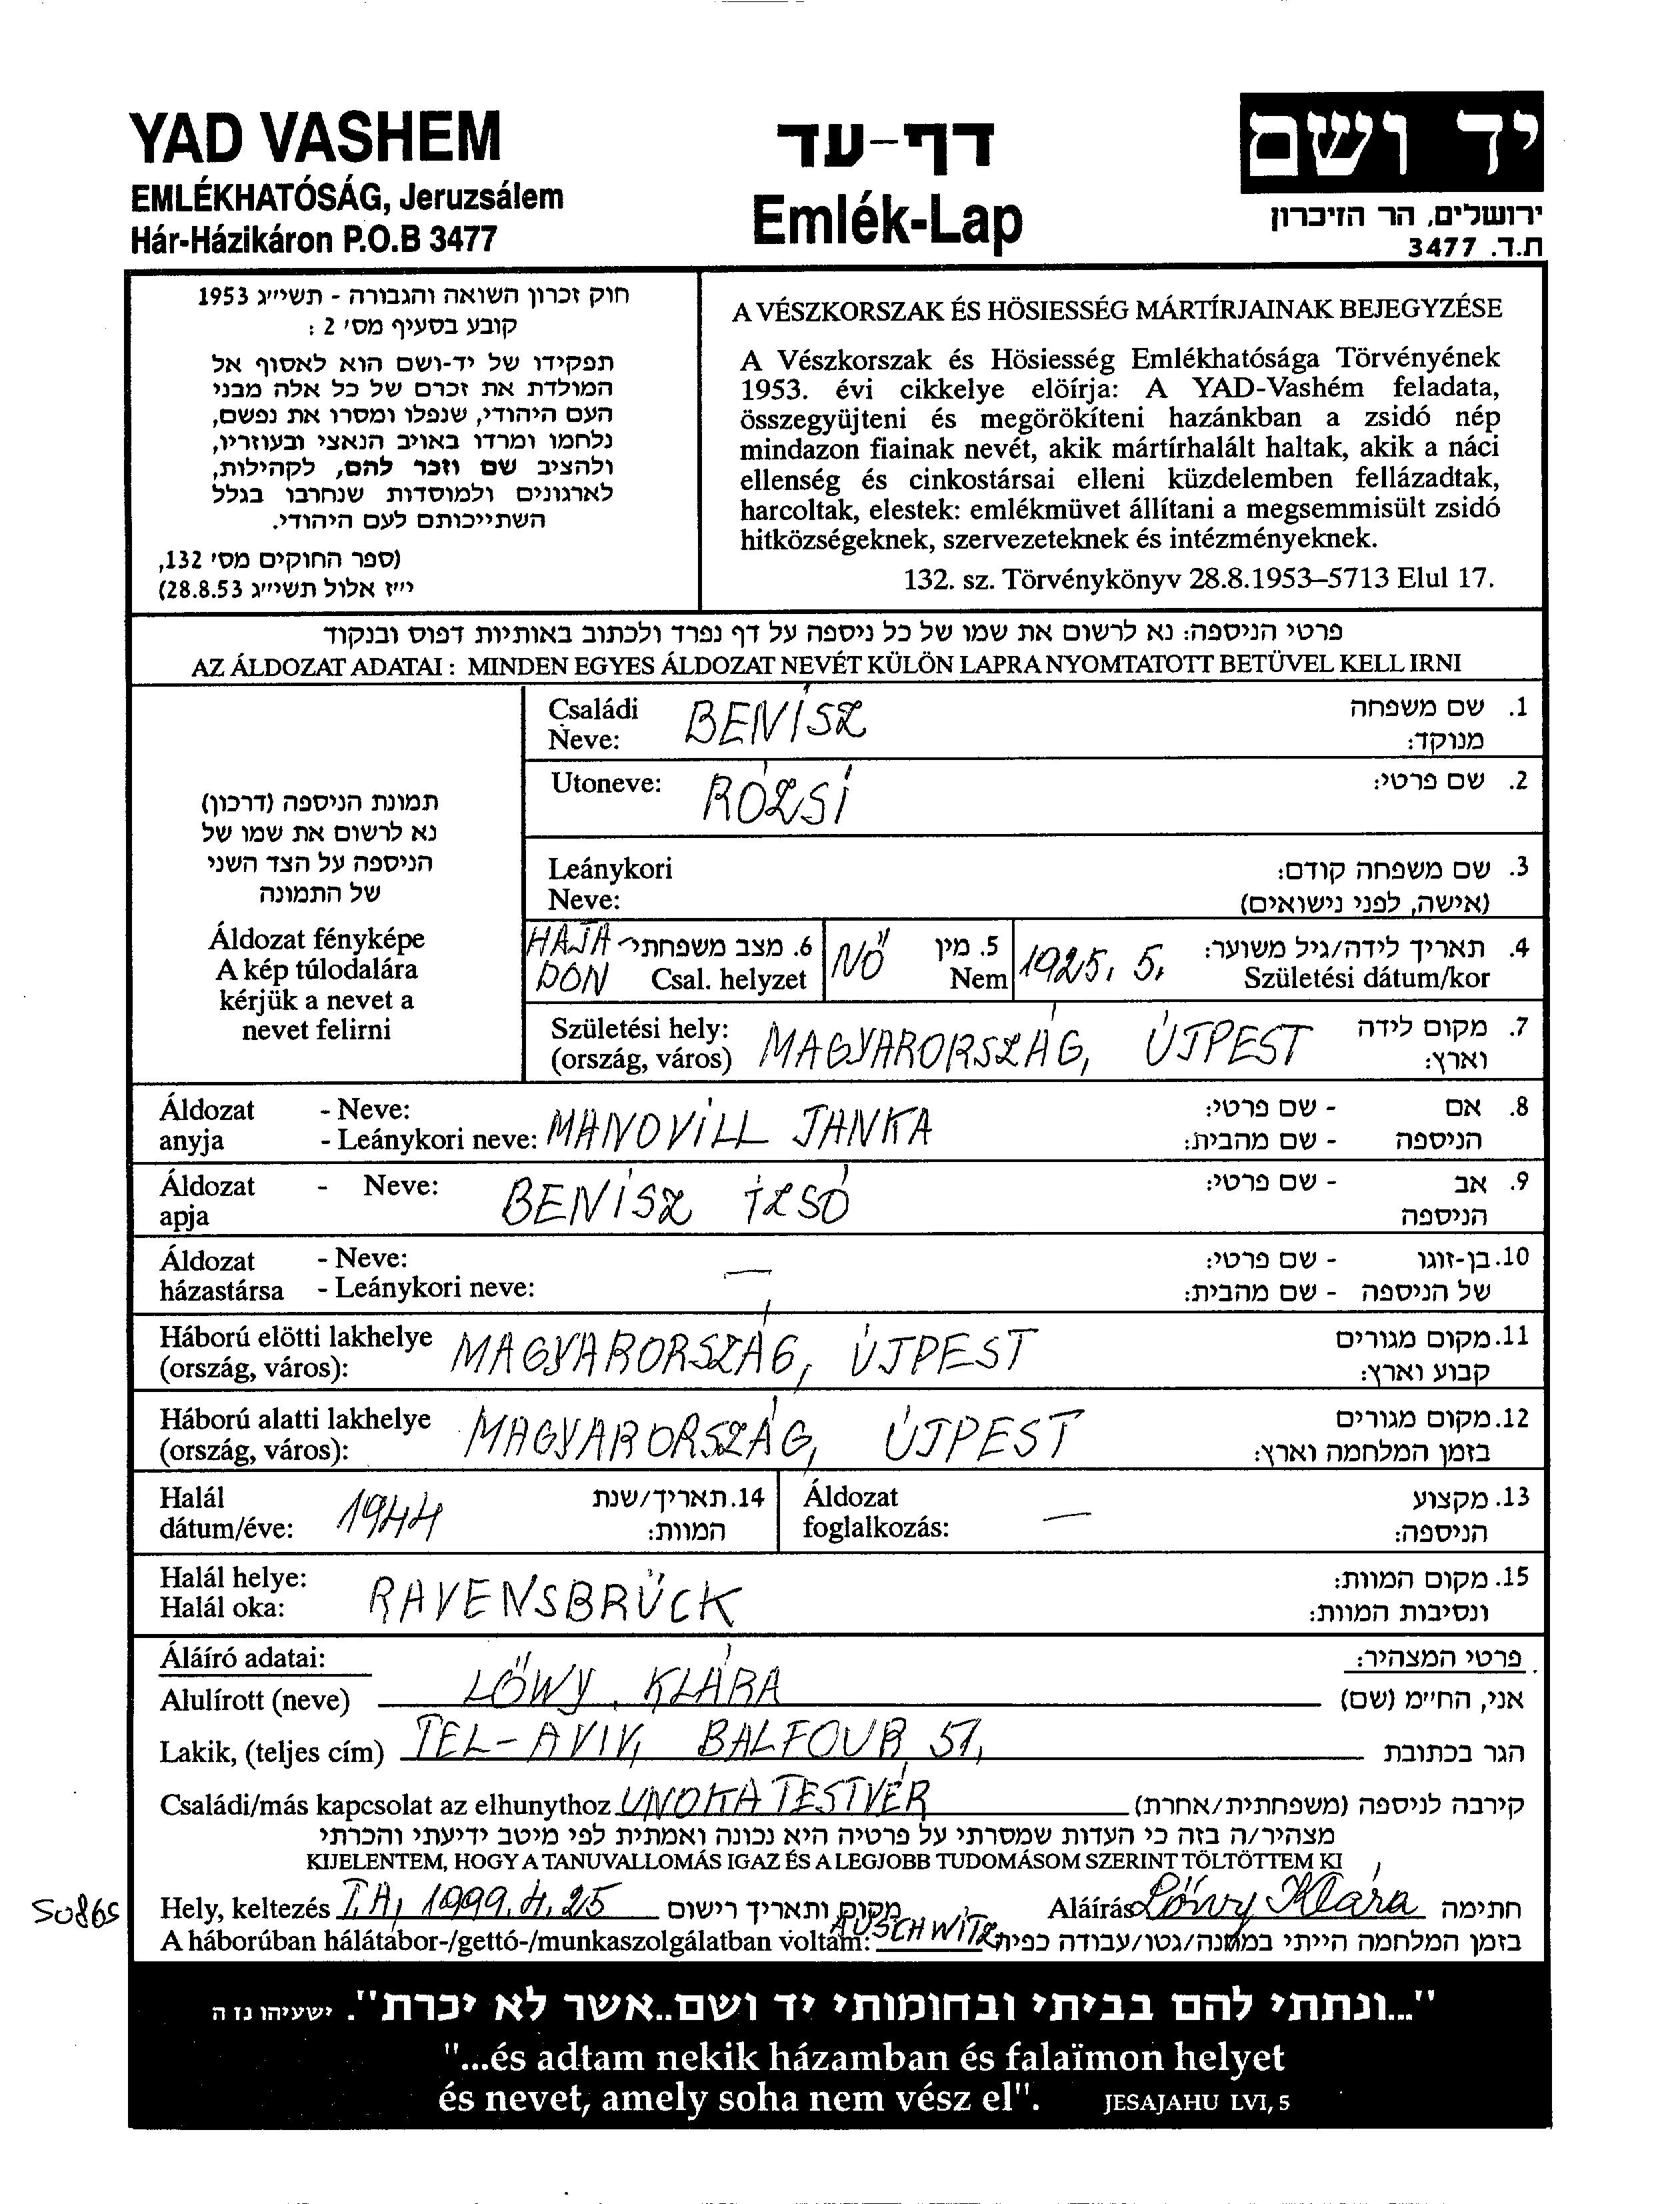 YAD VASHEM
EMLÉKHATÓSÁG, Jeruzsálem
Hár-Házikáron P.O.B 3477
דף-עד
Emlék-Lap
יד ושם
ירושלים, הר הזיכרון
ת.ד. 3477
חוק זכרון השואה והגבורה - תשי״ג 1953
קובע בסעיף מס׳ 2 :
תפקידו של יד-ושם הוא לאסוף אל
המולדת את זכרם של כל אלה מבני
העם היהודי, שנפלו ומסרו את נפשם,
נלחמו ומרדו באויב הנאצי ובעוזריו,
ולהציב שם וזכר להם, לקהילות,
לארגונים ולמוסדות שנחרבו בגלל
השתייכותם לעם היהודי.
(ספר החוקים מס׳ 132,
י״ז אלול תשי״ג 28.8.53)
A VÉSZKORSZAK ÉS HÖSIESSÉG MÁRTÍRJAINAK BEJEGYZÉSE
A Vészkorszak és Hösiesség Emlékhatósága Törvényének
1953. évi cikkelye elöírja: A YAD-Vashém feladata,
összegyüjteni és megörökíteni hazánkban a zsidó nép
mindazon fiainak nevét, akik mártírhalált haltak, akik a náci
ellenség és cinkostársai elleni küzdelemben fellázadtak,
harcoltak, elestek: emlékmüvet állítani a megsemmisült zsidó
hitközségeknek, szervezeteknek és intézményeknek.
132. sz. Törvénykönyv 28.8.1953–5713 Elul 17.
פרטי הניספה: נא לרשום את שמו של כל ניספה על דף נפרד ולכתוב באותיות דפוס ובנקוד
AZ ÁLDOZAT ADATAI : MINDEN EGYES ÁLDOZAT NEVÉT KÜLÖN LAPRA NYOMTATOTT BETÜVEL KELL IRNI
תמונת הניספה (דרכון)
נא לרשום את שמו של
הניספה על הצד השני
של התמונה
Áldozat fényképe
A kép túlodalára
kérjük a nevet a
nevet felirni
Családi BENISZ 1. שם משפחה
Neve: מנוקד:
Utoneve: RÓZSI 2. שם פרטי:
Leánykori 3. שם משפחה קודם:
Neve: (אישה, לפני נישואים)
HAJA 6. מצב משפחתי NŐ 5. מין 1925. 5. 4. תאריך לידה/גיל משוער:
DON Csal. helyzet Nem Születési dátum/kor
Születési hely: MAGYARORSZÁG, ÚJPEST 7. מקום לידה
(ország, város) וארץ:
Áldozat - Neve: MANOVILL JANKA - שם פרטי: 8. אם
anyja - Leánykori neve: - שם מהבית: הניספה
Áldozat - Neve: BENISZ IZSÓ - שם פרטי: 9. אב
apja הניספה
Áldozat - Neve: — - שם פרטי: 10. בן-זוגו
házastársa - Leánykori neve: - שם מהבית: של הניספה
Háború elötti lakhelye MAGYARORSZÁG, ÚJPEST 11. מקום מגורים
(ország, város): קבוע וארץ:
Háború alatti lakhelye MAGYARORSZÁG, ÚJPEST 12. מקום מגורים
(ország, város): בזמן המלחמה וארץ:
Halál 1944 14. תאריך/שנת Áldozat — 13. מקצוע
dátum/éve: המוות: foglalkozás: הניספה:
Halál helye: RAVENSBRÜCK 15. מקום המוות:
Halál oka: ונסיבות המוות:
Áláíró adatai: פרטי המצהיר:
Alulírott (neve) LŐWY, KLÁRA אני, הח״מ (שם)
Lakik, (teljes cím) TEL-AVIV, BALFOUR 57, הגר בכתובת
Családi/más kapcsolat az elhunythoz UNOKATESTVÉR קירבה לניספה (משפחתית/אחרת)
מצהיר/ה בזה כי העדות שמסרתי על פרטיה היא נכונה ואמתית לפי מיטב ידיעתי והכרתי
KIJELENTEM, HOGY A TANUVALLOMÁS IGAZ ÉS A LEGJOBB TUDOMÁSOM SZERINT TÖLTÖTTEM KI
50865
Hely, keltezés T.A, 1999.4.25 מקום ותאריך רישום Aláírás Lőwy Klára חתימה
A háborúban hálátábor-/gettó-/munkaszolgálatban voltam: AUSCHWITZ בזמן המלחמה הייתי במחנה/גטו/עבודה כפיה
"...ונתתי להם בביתי ובחומותי יד ושם..אשר לא יכרת". ישעיהו נו ה
"...és adtam nekik házamban és falaïmon helyet
és nevet, amely soha nem vész el". JESAJAHU LVI, 5